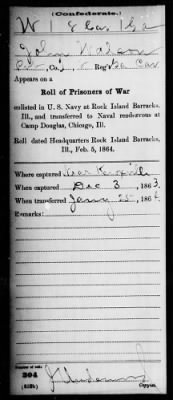 (Confederate.)
W 8 Cav Ga
John
Pvt, Co. , Reg't Ga Cav
Appears on a
Roll of Prisoners of War
enlisted in U. S. Navy at Rock Island Barracks,
Ill., and transferred to Naval rendezvous at
Camp Douglas, Chicago, Ill.
Roll dated Headquarters Rock Island Barracks,
Ill., Feb. 5, 1864.
Where captured Near
When captured Dec 3, 1863.
When transferred Jany 25, 1864.
Remarks:
Number of roll:
304
Copyist.